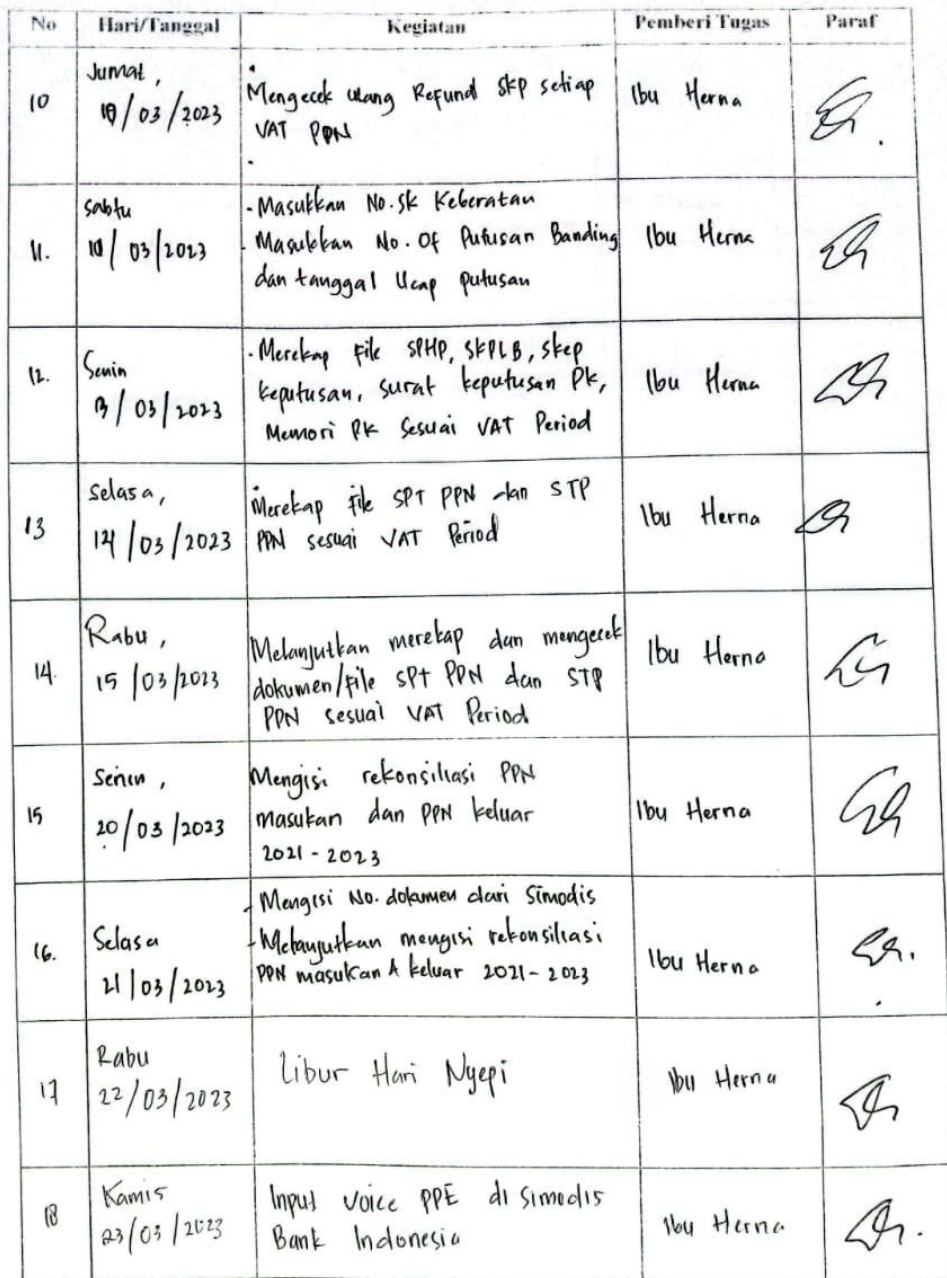 No Hari/Tanggal Kegiatan Pemberi Tugas Paraf
10
Jumat,
/03/2023
Mengecek ulang Refund SKP setiap
VAT PPN
Ibu Herna
11.
Sabtu
/03/2023
- Masukkan No. SK Keberatan
- Masukkan No. Of Putusan Banding
dan tanggal Ucap putusan
Ibu Herna
12.
Senin
13/03/2023
- Merekap File SPHP, SKPLB, Skep
keputusan, surat keputusan PK,
Memori PK Sesuai VAT Period
Ibu Herna
13
Selasa,
14/03/2023
Merekap file SPT PPN dan STP
PPN sesuai VAT Period
Ibu Herna
14.
Rabu,
15/03/2023
Melanjutkan merekap dan mengecek
dokumen/file SPT PPN dan STP
PPN sesuai VAT Period
Ibu Herna
15
Senin,
20/03/2023
Mengisi rekonsiliasi PPN
masukan dan PPN keluar
2021 - 2023
Ibu Herna
16.
Selasa
21/03/2023
- Mengisi No. dokumen dari Simodis
- Melanjutkan mengisi rekonsiliasi
PPN masukan & keluar 2021 - 2023
Ibu Herna
17
Rabu
22/03/2023
Libur Hari Nyepi
Ibu Herna
18
Kamis
23/03/2023
Input Voice PPE di Simodis
Bank Indonesia
Ibu Herna